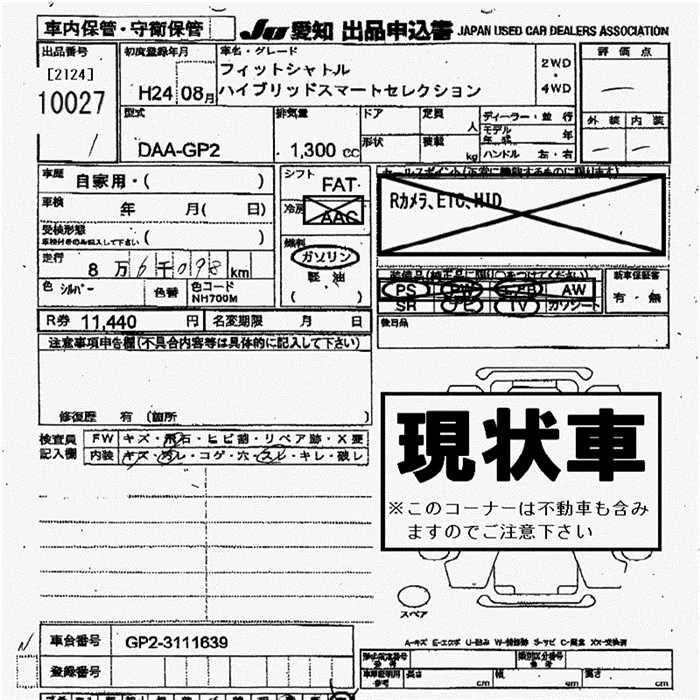 車内保管・守衛保管
JU 愛知 出品申込書 JAPAN USED CAR DEALERS ASSOCIATION
出品番号
[2124]
10027
初度登録年月
H24 08月
車名・グレード
フィットシャトル
ハイブリッドスマートセレクション
2WD
・
4WD
評価点
外装 内装
型式
DAA-GP2
排気量
1,300 cc
ドア
形状
定員
人
積載
kg
ディーラー・並行
モデル
年式 年
ハンドル 左・右
車歴
自家用・( )
車検
年 月( 日)
受検形態
( )
走行
8万6千098km
色 シルバー 色替 色コード
NH700M
シフト
FAT
冷房
AAC
燃料
ガソリン
軽油
( )
セールスポイント(正常に機能するものに限ります)
Rカメラ、ETC、HID
装備品(純正品に限り○をつけてください)
PS PW エアB AW
SR ナビ TV カワシート
新車保証書
有・無
後日品
R券 11,440 円 名変期限 月 日
注意事項申告欄(不具合内容等は具体的に記入して下さい)
修復歴 有 (箇所 )
検査員
記入欄
FW キズ・飛石・ヒビ割・リペア跡・X要
内装 キズ・汚レ・コゲ・穴・スレ・キレ・破レ
現状車
※このコーナーは不動車も含み
ますのでご注意下さい
スペア
車台番号 GP2-3111639
登録番号
A-キズ E-エクボ U-凹み W-補修跡 S-サビ C-腐食 XX-交換済
型式指定番号
類別区分番号
長さ cm 幅 cm 高さ cm